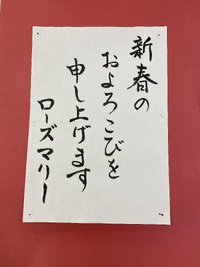 新春の
およろこびを
申し上げます
ローズマリー